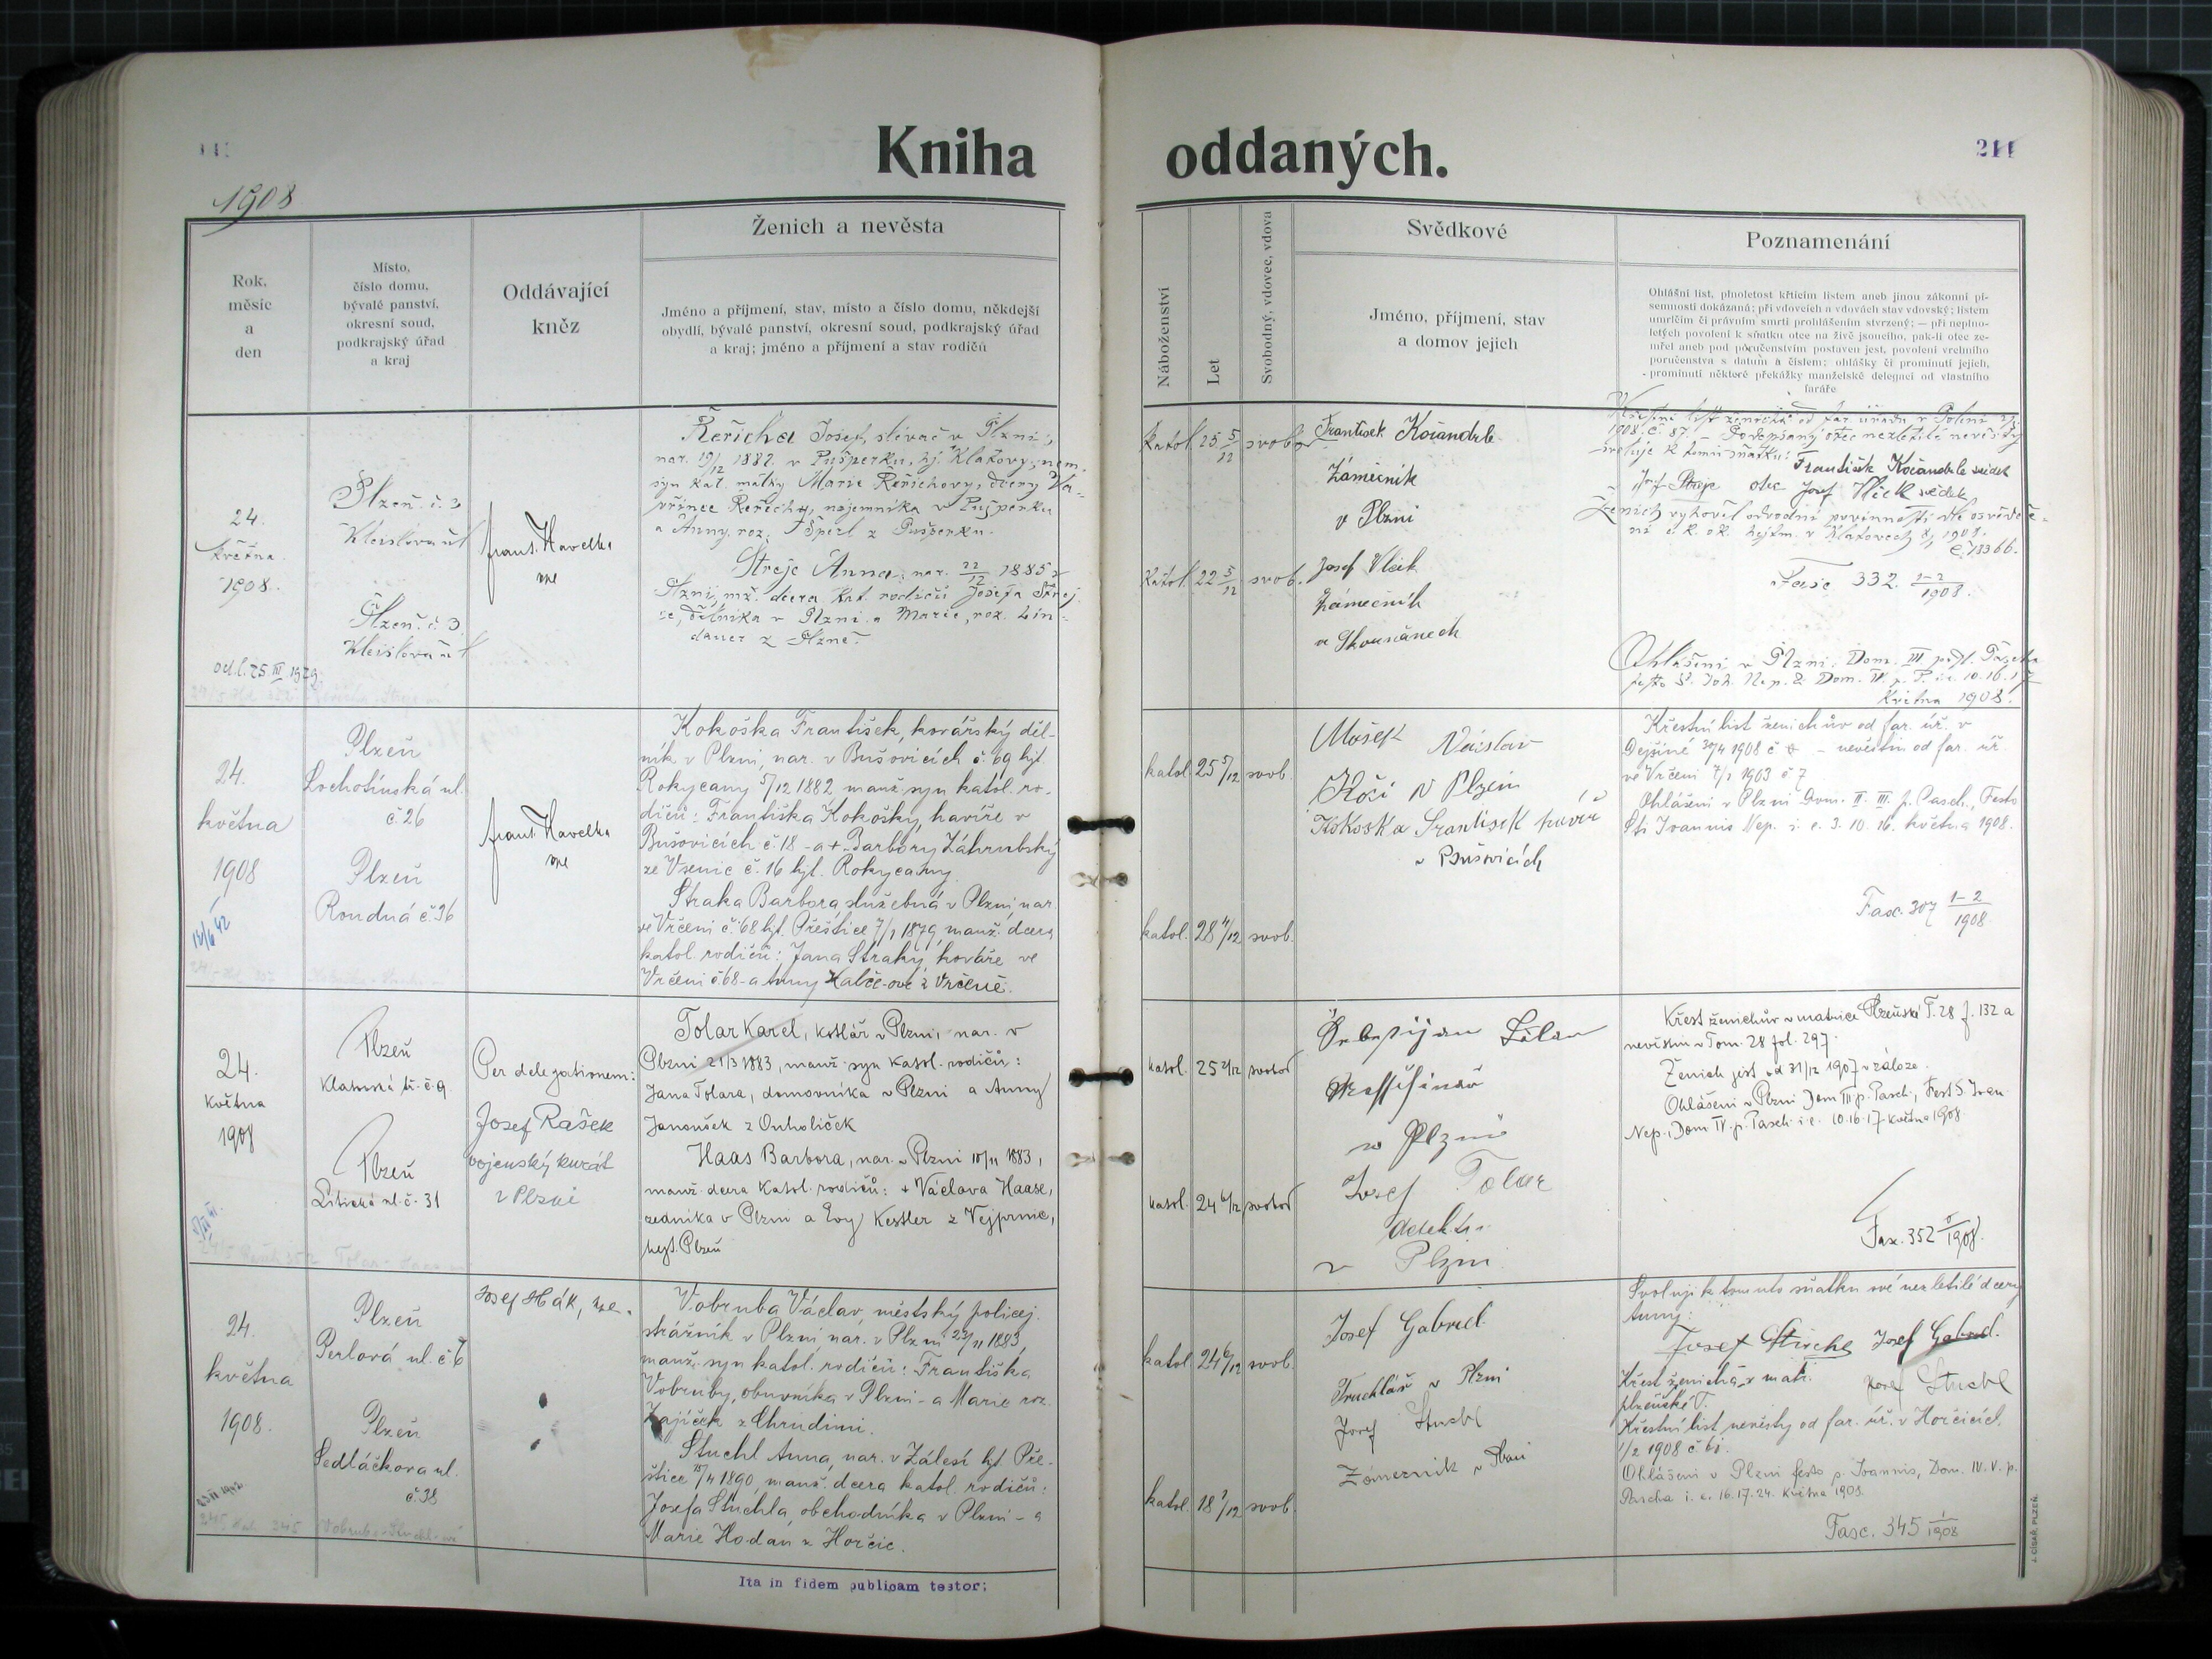 Kniha oddaných.
211
1908
Rok, měsíc a den
Místo, číslo domu, bývalé panství, okresní soud, podkrajský úřad a kraj
Oddávající kněz
Ženich a nevěsta
Jméno a příjmení, stav, místo a číslo domu, někdejší
obydlí, bývalé panství, okresní soud, podkrajský úřad
a kraj; jméno a příjmení a stav rodičů
Náboženství
Let
Svobodný, vdovec, vdova
Svědkové
Jméno, příjmení, stav
a domov jejich
Poznamenání
Ohlášní list, plnoletost křticím listem aneb jinou zákonní pí-
semností dokázaná; při vdovcích a vdovách stav vdovský; listem
umrlčím či právním smrti prohlášením stvrzený; — při neplno-
letých povolení k sňatku otce na živě jsoucího, pak-li otec ze-
mřel aneb pod poručenstvím postaven jest, povolení vrchního
poručenstva s datum a číslem; ohlášky či prominutí jejich,
prominutí některé překážky manželské delegací od vlastního
faráře
24.
května
1908.
Plzeň. č. 3
Kleislova ul
Plzeň. č. 3
Kleislova ul
Frant. Havelka
Řeřicha Josef, slévač v Plzni,
nar. 19/12 1882. v Pušperku, hj. Klatovy, nem.
syn kat. matky Marie Řeřichovy, dcery Va-
vřince Řeřichy, nájemníka v Pušperku
a Anny, roz. Šperl z Pušperku.
Streje Anna, nar. 22/12 1885 v
Plzni, mž. dcera kat. rodičů Josefa Strej-
še, dělníka v Plzni a Marie, roz. Lin-
dauer z Plzně.
katol. 25 5/12 svob.
katol. 22 5/12 svob.
František Kočandrle
Zámečník
v Plzni
Josef Vlček
zámečník
ve Skvrňanech
1908. č. 87. – Podepsaný otec nezletilé nevěsty
svoluje k tomu sňatku: František Kočandrle svědek
otec Josef Vlček svědek
Ženich vyhověl odvodní povinnosti dle osvědče-
ní c. k. ok. hejtm. v Klatovech
Fasc 332. 1-2/1908.
Ohlášeni v Plzni: Dom. III
10. 16. 17
května 1908.
24.
května
1908
Plzeň
Lochotínská ul.
č. 26
Plzeň
Roudná č. 96
Frant. Havelka
Kokoška František, kovářský děl-
ník v Plzni, nar. v Bušovicích č. 69 hjt.
Rokycany 5/12 1882 manž. syn katol. ro-
dičů: Františka Kokošky, havíře v
Bušovicích č. 18 – a + Barbory Záhrubský
ze Vsenic č. 16 hjt. Rokycany.
Straka Barbora služebná v Plzni, nar.
ve Vrčeni č. 68 hjt. Přeštice 7/1 1879, manž. dcera
katol. rodičů: Jana Straky, kováře ve
Vrčeni č. 68 – a Anny
katol. 25 5/12 svob.
katol. 28 4/12 svob.
Mošek
Kočí v Plzni
Kokoška František havíř
v Bušovicích
Křestní list ženichův od far. úř. v
Dejšině 30/4 1908 – nevěstin od far. úř.
ve Vrčeni 7/1 1903 č 7
Ohlášeni v Plzni Dom. II. III. p. Pasch., Festo
Sti Joannis Nep. i. e. 3. 10. 16. května 1908.
Fasc. 307 1-2/1908
24.
května
1908
Plzeň
Klatovská tř. č. 9
Plzeň
Litická ul. č. 31
Per delegationem:
Josef Rašek
vojenský kurát
v Plzni
Tolar Karel, kotlář v Plzni, nar. v
Plzni 21/3 1883, manž. syn katol. rodičů:
Jana Tolara, domovníka v Plzni a Anny
Janoušek z Ouholiček
Haas Barbora, nar. v Plzni 10/11 1883,
manž. dcera katol. rodičů: + Václava Haase,
zedníka v Plzni a Evy Kestler z Vejprnic,
hejt. Plzeň
katol. 25 2/12 svobod
katol. 24 6/12 svobod
v Plzni
Josef Tolar
v Plzni
Křest ženichův v matrice Plzeňské T. 28 f. 132 a
nevěstin v Tom. 28 fol. 297.
Ženich jest od 31/12 1907 v záloze.
Ohlášeni v Plzni Dom III p. Pasch., Fest S. Joan.
Nep., Dom IV. p. Pasch. i. e. 10. 16. 17. května 1908
Fasc. 352
24.
května
1908.
Plzeň
Perlová ul. č. 6
Plzeň
Sedláčkova ul.
č. 38
Josef Hák,
Vobruba Václav, městský policej.
strážník v Plzni, nar. v Plzni 23/11 1883,
manž. syn katol. rodičů: Františka
Vobruby, obuvníka v Plzni – a Marie roz.
Zajíček z Chrudimi.
Stuchl Anna, nar. v Zálesí hjt. Pře-
štice 1890, manž. dcera katol. rodičů:
Josefa Stuchla, obchodníka v Plzni – a
Marie Hodan z Horčic.
katol. 24 6/12 svob.
katol. 18 1/12 svob.
Josef Gabriel
Truchlář v Plzni
Josef Stuchl
Zámečník v Plzni
Svoluji k tomuto sňatku své nezletilé dcery
Anny:
Josef Gabriel.
Josef Stuchl
Křest ženicha v matr.
plzeňské T.
Křestní list nevěsty od far. úř. v Horčicích
1/2 1908
Ohlášeni v Plzni festo p. Joannis, Dom. IV. V. p.
Pascha i. e. 16. 17. 24. května 1908.
Fasc. 345 1/1908
Ita in fidem publicam testor:
J. CÍSAŘ, PLZEŇ.